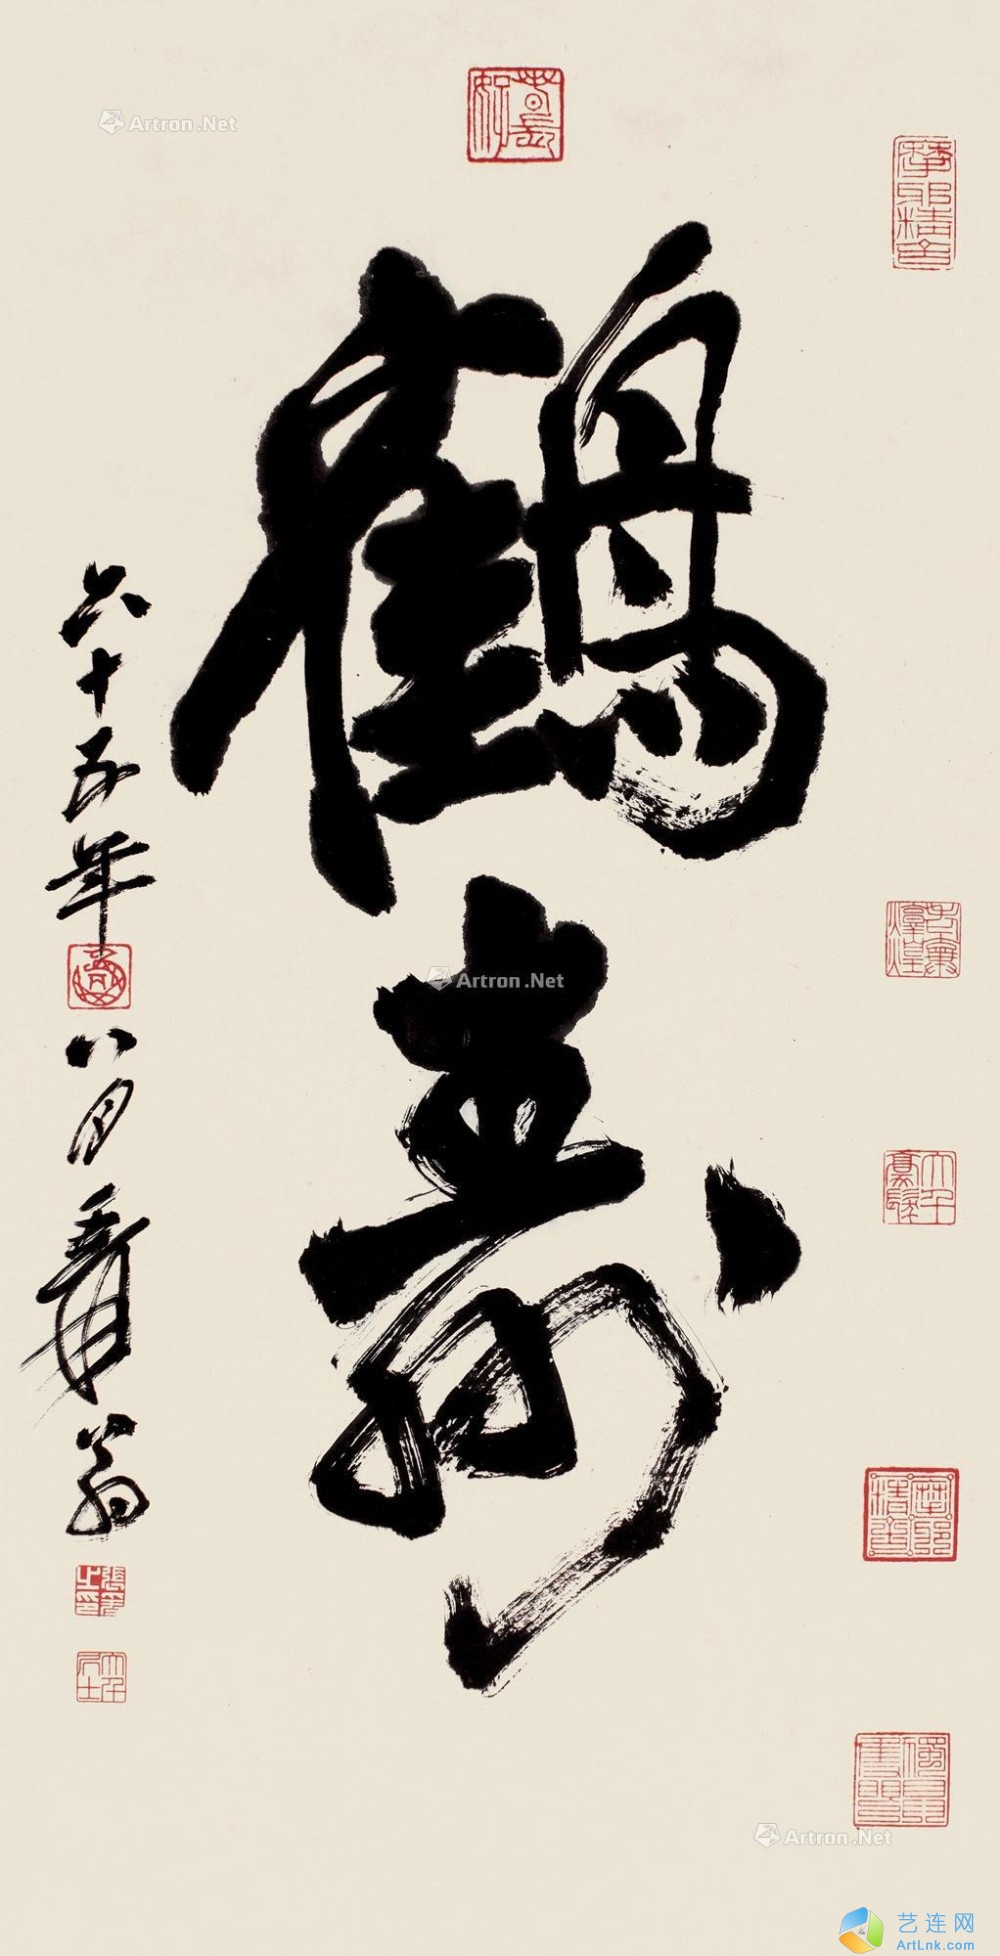 鶴壽
六十五年八月爰翁
張爰之印
大千居士
Artron.Net
Artron.Net
Artron.Net
艺连网
ArtLnk.com